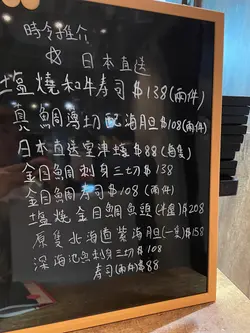 時令推介
☆ 日本直送
塩燒和牛寿司$138(兩件)
真鯛薄切配海胆$108(兩件)
日本直送 $88(隻)
金目鯛刺身三切$138
金目鯛寿司$108(兩件)
塩燒金目鯛魚頭(半座)$208
原隻北海道紫海胆(一隻)$158
深海池魚刺身三切$108
寿司(兩件)$88